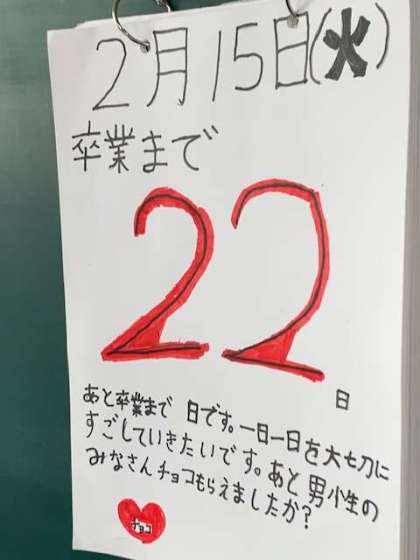 2月15日(火)
卒業まで
22
日
あと卒業まで 日です。一日一日を大切に
すごしていきたいです。あと男小生の
みなさんチョコもらえましたか?
チョコ